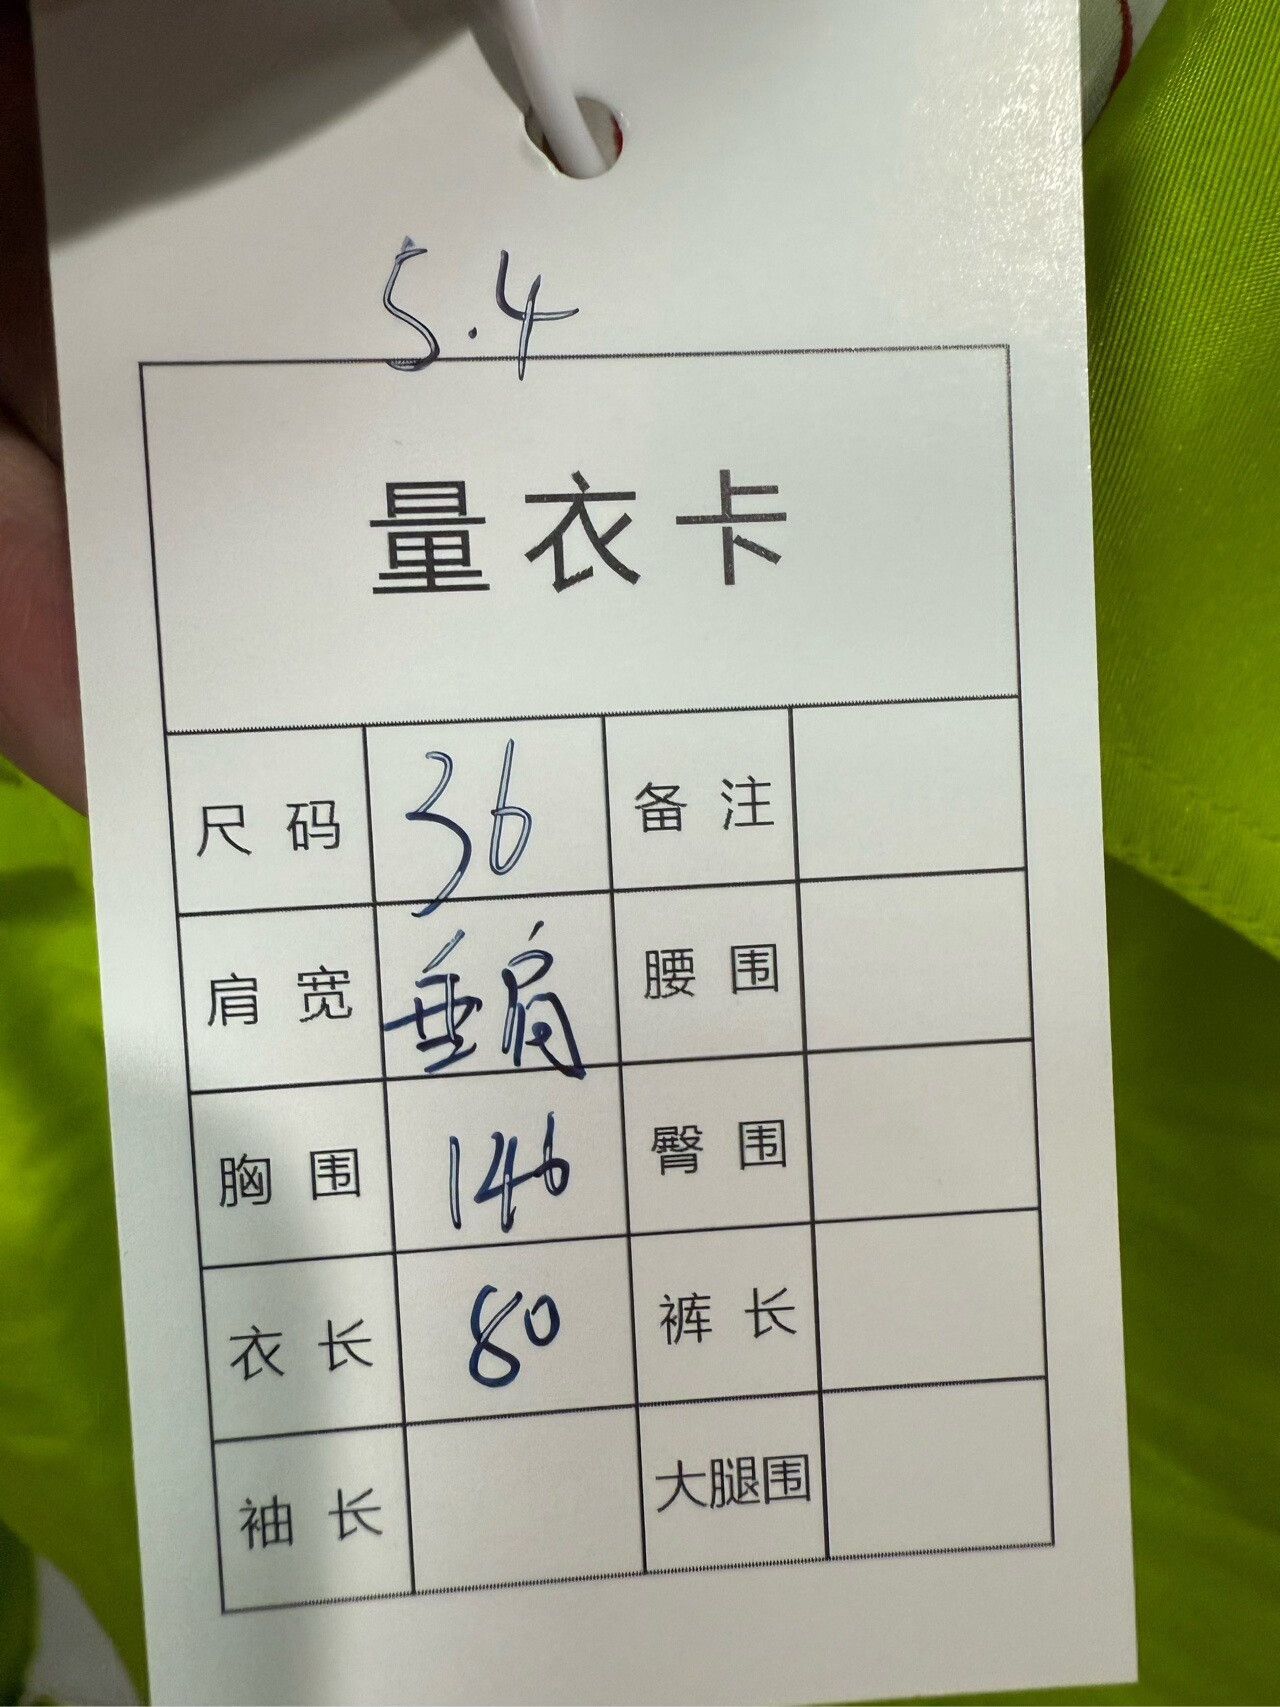 5.4
量衣卡
尺码 36 备注
肩宽 垂肩 腰围
胸围 146 臀围
衣长 80 裤长
袖长 大腿围